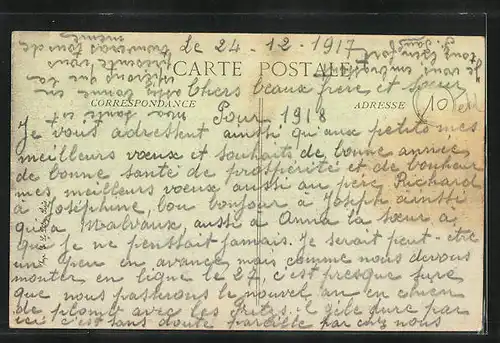 Le 24-12-1917
CARTE POSTALE
Chers beaux frère et soeur
CORRESPONDANCE
ADRESSE
10
Pour 1918
Je vous adressent ainsi qu'aux petits mes
meilleurs voeux et souhaits de bonne année
de bonne santé de prospérité et de bonheur
mes meilleurs voeux aussi au père Richard
à Joséphine, bonjour à Joseph ainssi
qu'a Malvaux, aussi à Anna la soeur à
que je ne penssait jamais. Je serait peut-être
un peu en avance mais comme nous devons
monter en ligne le 27, c'est presque sure
que nous passerons le nouvel an en chien
de plomb avec les Fritz. il gèle dure par
ici c'est sans doute pareille par chez nous